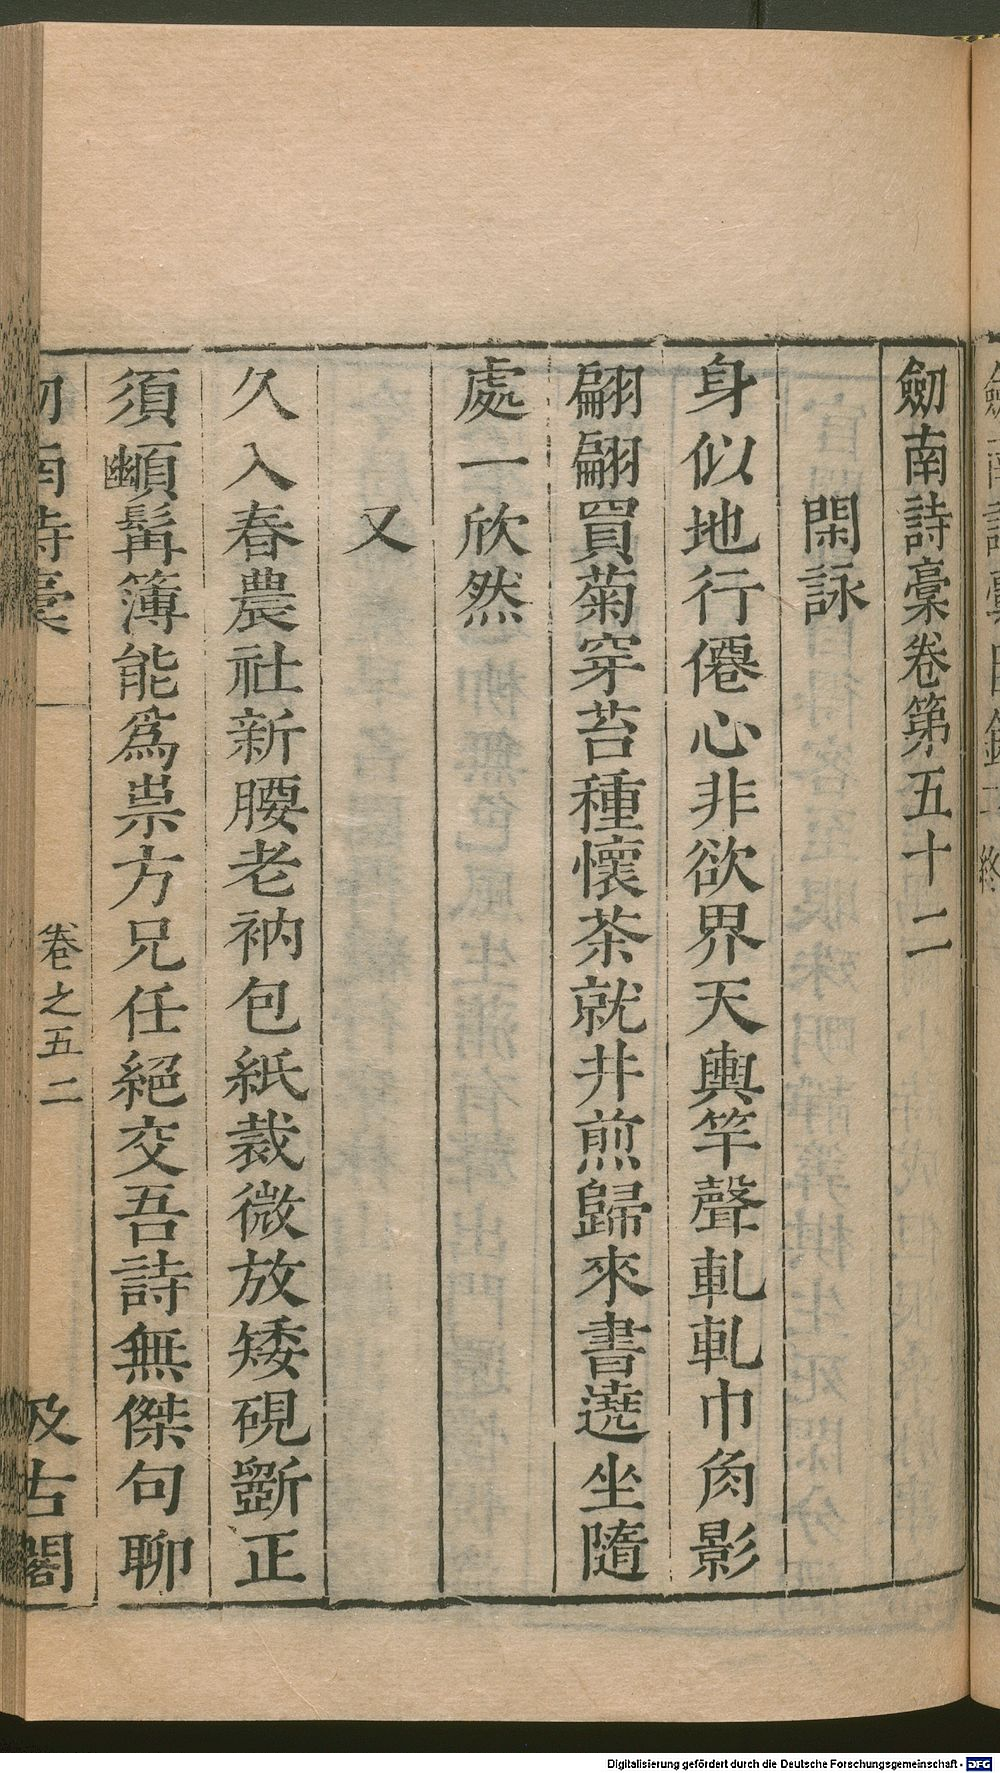 劒南詩稾卷第五十二
閑詠
身似地行僊心非欲界天輿竿聲軋軋巾角影
翩翩買菊穿苔種懷茶就井煎歸來書遶坐隨
處一欣然
又
久入春農社新腰老衲包紙裁微放矮硯斵正
須㘭髩簿能爲祟方兄任絕交吾詩無傑句聊
南詩稾
卷之五二
汲古閣
Digitalisierung gefördert durch die Deutsche Forschungsgemeinschaft - DFG